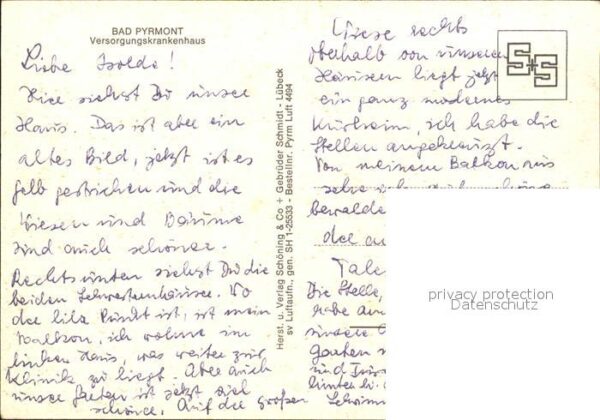 BAD PYRMONT
Versorgungskrankenhaus
Liebe Isolde!
Hier siehst Du unser
Haus. Das ist aber ein
altes Bild, jetzt ist es
gelb gestrichen und die
Wiesen und Bäume
sind auch schöner.
Rechts unten siehst Du die
beiden Schwesternhäuser. Wo
der lila Punkt ist, ist mein
Balkon, ich wohne im
linken Haus, was weiter zur
Klinik zu liegt. Aber auch
unser Garten ist jetzt viel
schöner. Auf die großen
Herst. u. Verlag Schöning & Co + Gebrüder Schmidt - Lübeck
sv Luftaufn., gen. SH 1-25533 - Bestellnr. Pyrm Luft 4494
Wiese rechts
oberhalb von unseren
Häusern liegt jetzt
ein ganz modernes
Kurheim, ich habe die
Stellen angekreuzt.
Von meinem Balkon aus
sehe ich
bewalde
der
Tale
Die Stelle,
habe
unsere
Garten
und
hinter
Schwimm
S+S
privacy protection
Datenschutz